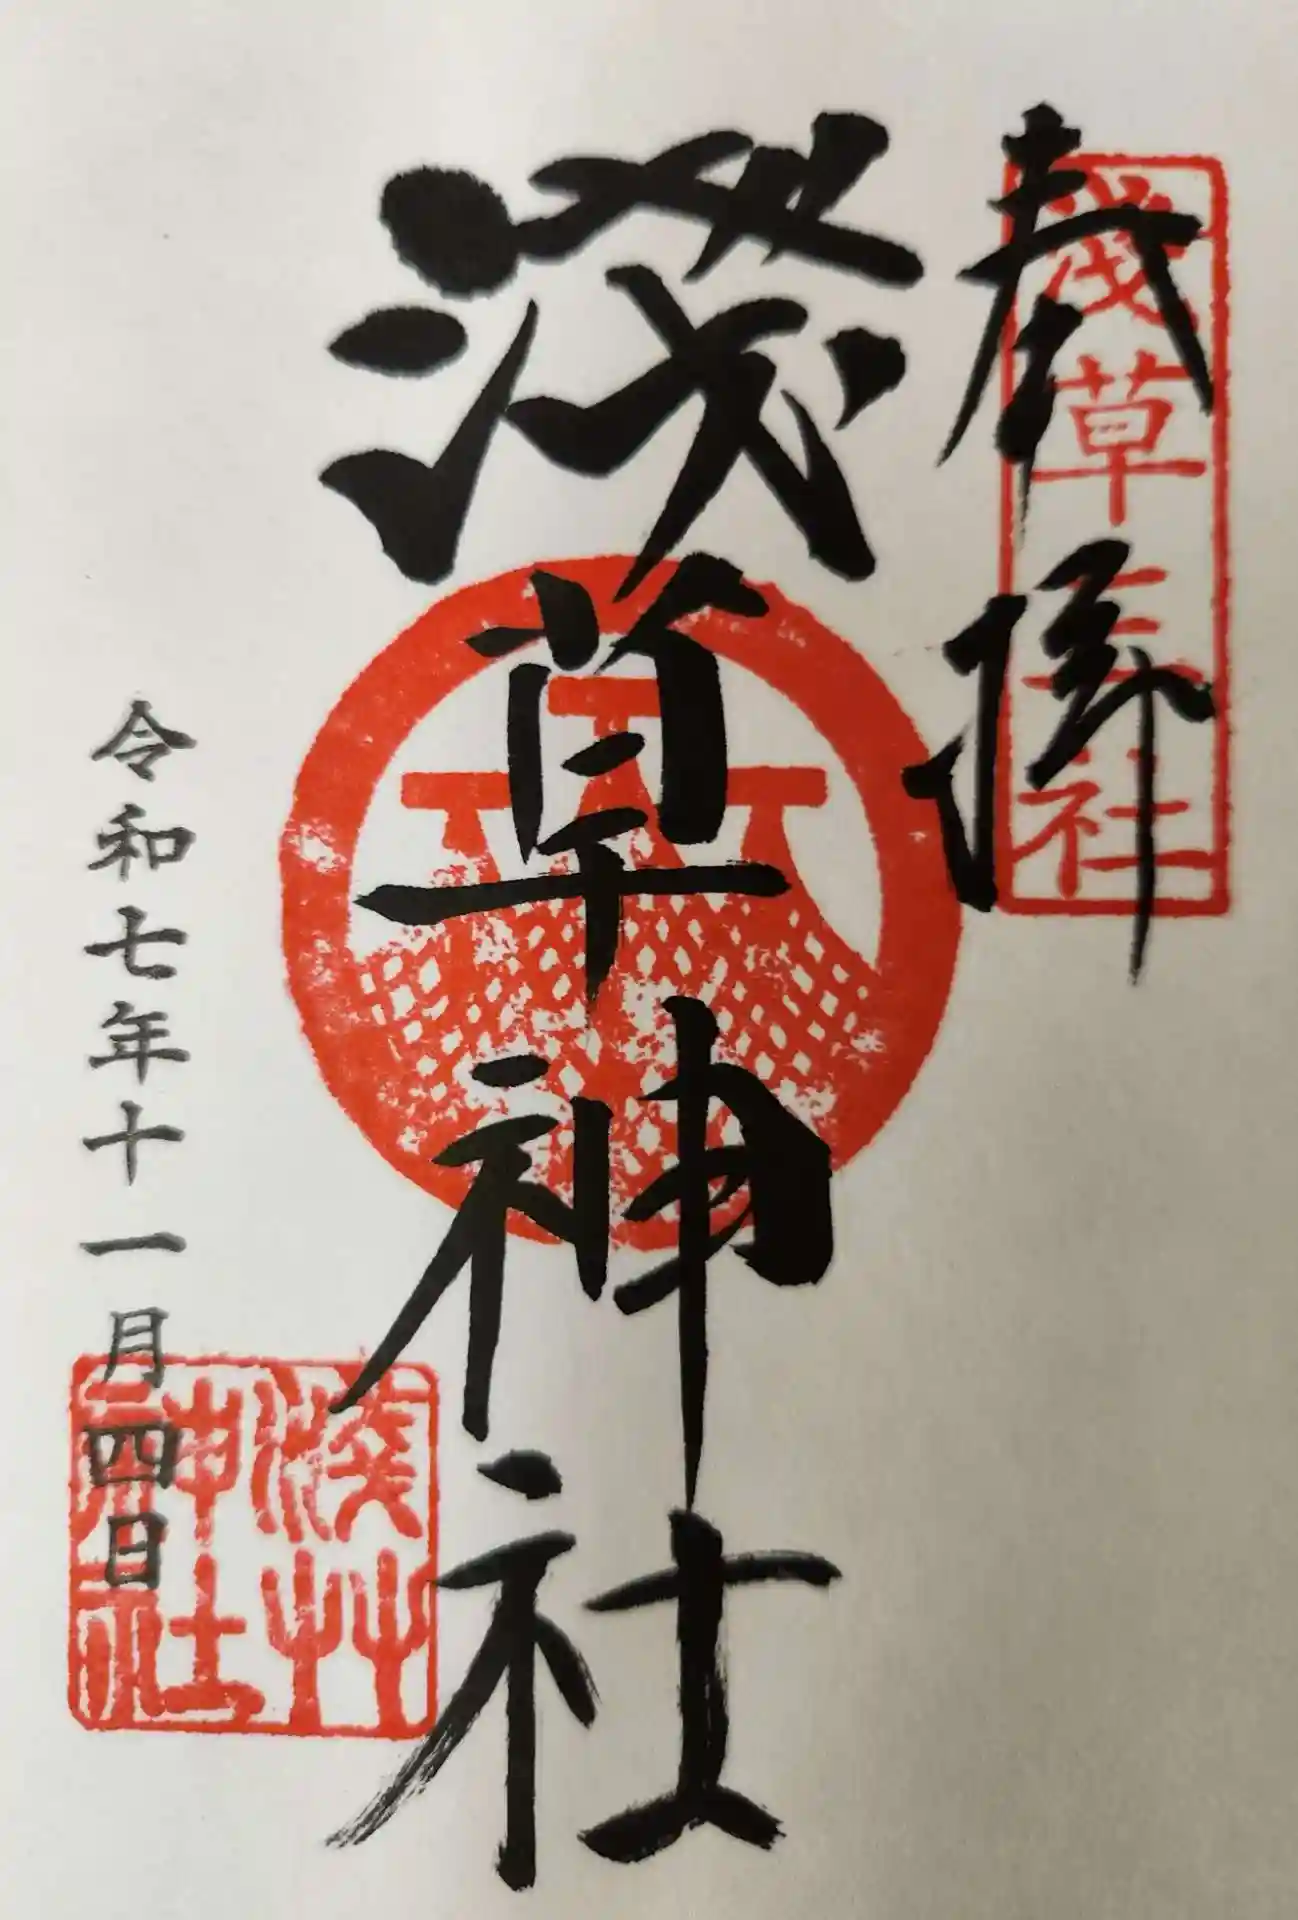 奉拝
淺草三社
淺草神社
令和七年十一月四日
淺艸神社